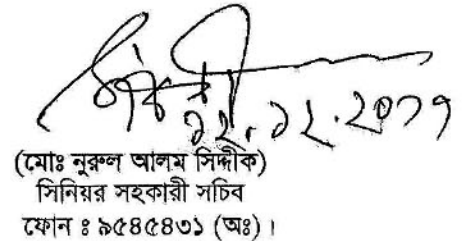 ১২.১২.২০১৭
(মোঃ নুরুল আলম সিদ্দীক)
সিনিয়র সহকারী সচিব
ফোন ঃ ৯৫৪৫৪৩১ (অঃ)।